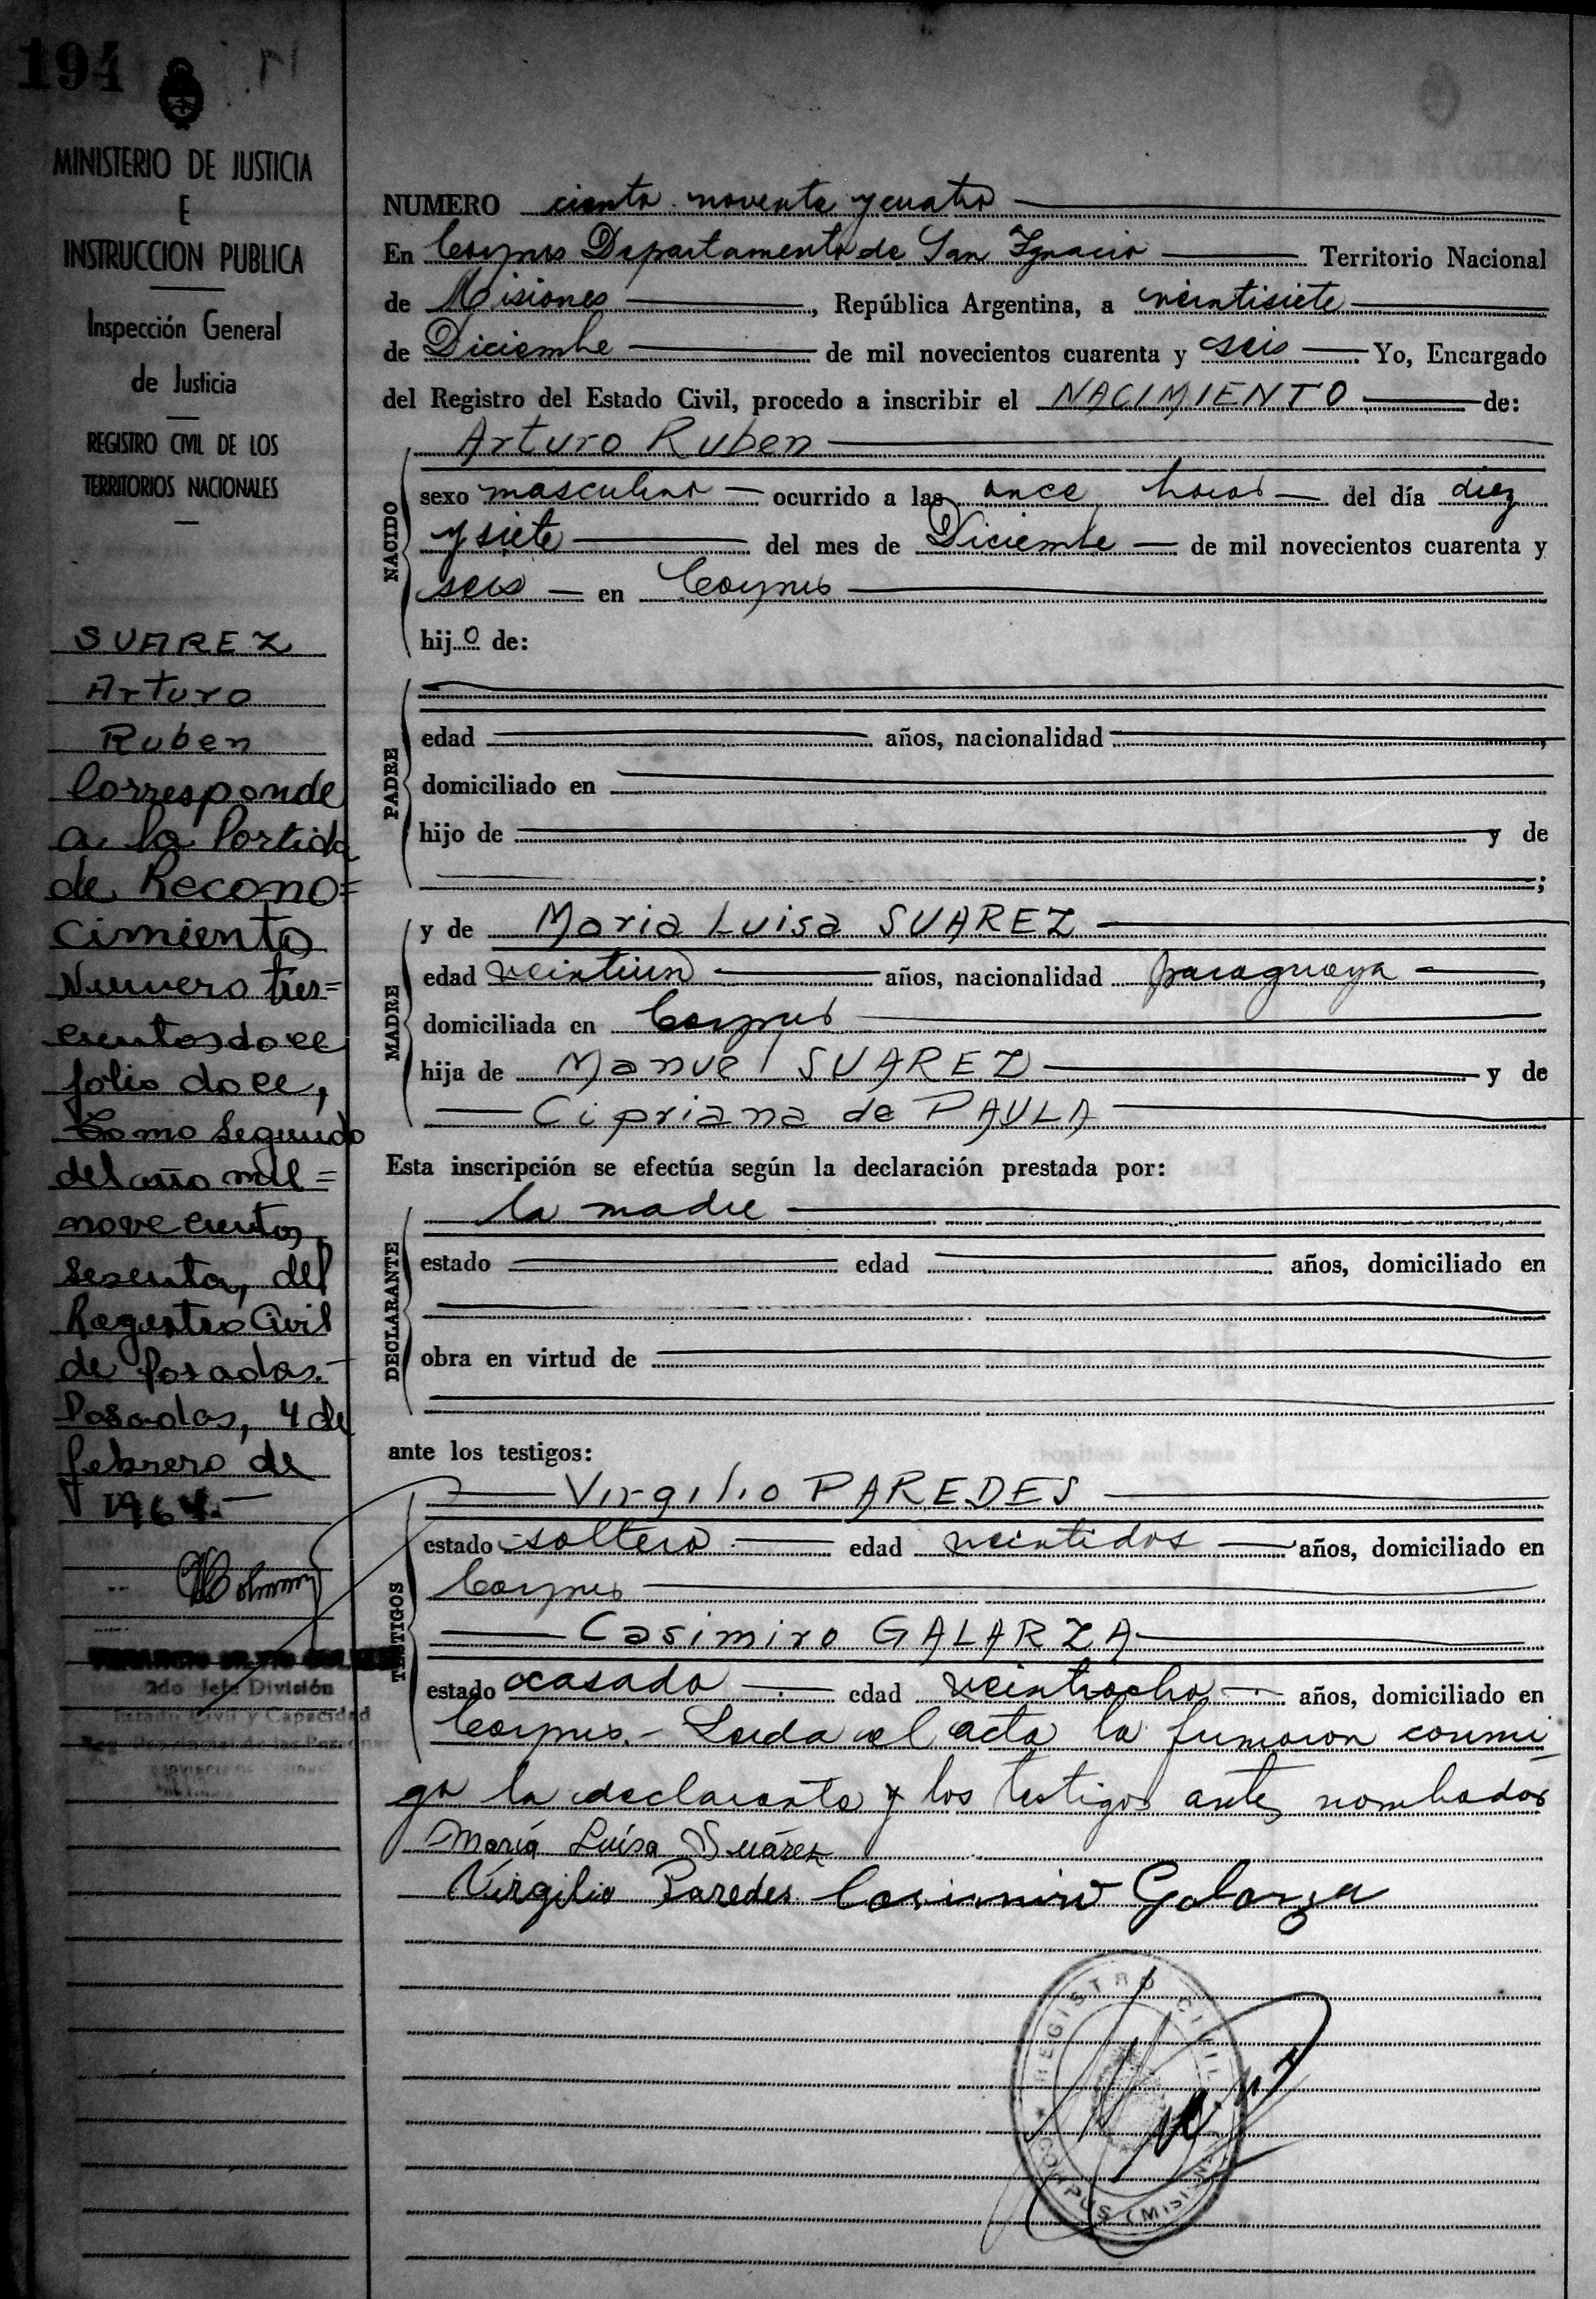 194
MINISTERIO DE JUSTICIA
E
INSTRUCCION PUBLICA
Inspección General
de Justicia
REGISTRO CIVIL DE LOS
TERRITORIOS NACIONALES
SUAREZ
Arturo
Ruben
Corresponde
a la Partida
de Recono=
cimiento
Numero tres=
cientos doce
folio doce,
Tomo Segundo
del año mil=
novecientos
sesenta, del
Registro Civil
de Posadas.-
Posadas, 4 de
febrero de
1964.-
2do Jefe División
Estado Civil y Capacidad
NUMERO ciento noventa y cuatro
En Corpus Departamento de San Ignacio Territorio Nacional
de Misiones, República Argentina, a veintisiete
de Diciembre de mil novecientos cuarenta y seis Yo, Encargado
del Registro del Estado Civil, procedo a inscribir el NACIMIENTO de:
Arturo Ruben
NACIDO
sexo masculino ocurrido a las once horas del día diez
y siete del mes de Diciembre de mil novecientos cuarenta y
seis en Corpus
hijo de:
PADRE
edad años, nacionalidad ,
domiciliado en
hijo de y de
;
MADRE
y de Maria Luisa SUAREZ
edad veintiun años, nacionalidad paraguaya ,
domiciliada en Corpus
hija de Manuel SUAREZ y de
Cipriana de PAULA
Esta inscripción se efectúa según la declaración prestada por:
DECLARANTE
la madre
estado edad años, domiciliado en
obra en virtud de
ante los testigos:
TESTIGOS
Virgilio PAREDES
estado soltero edad veintidos años, domiciliado en
Corpus
Casimiro GALARZA
estado casado edad veintiocho años, domiciliado en
Corpus.- Leida el acta la firmaron conmi
go la declarante y los testigos antes nombrados
María Luísa Suárez
Virgilio Paredes Casimiro Galarza
REGISTRO CIVIL
CORPUS (MISIONES)